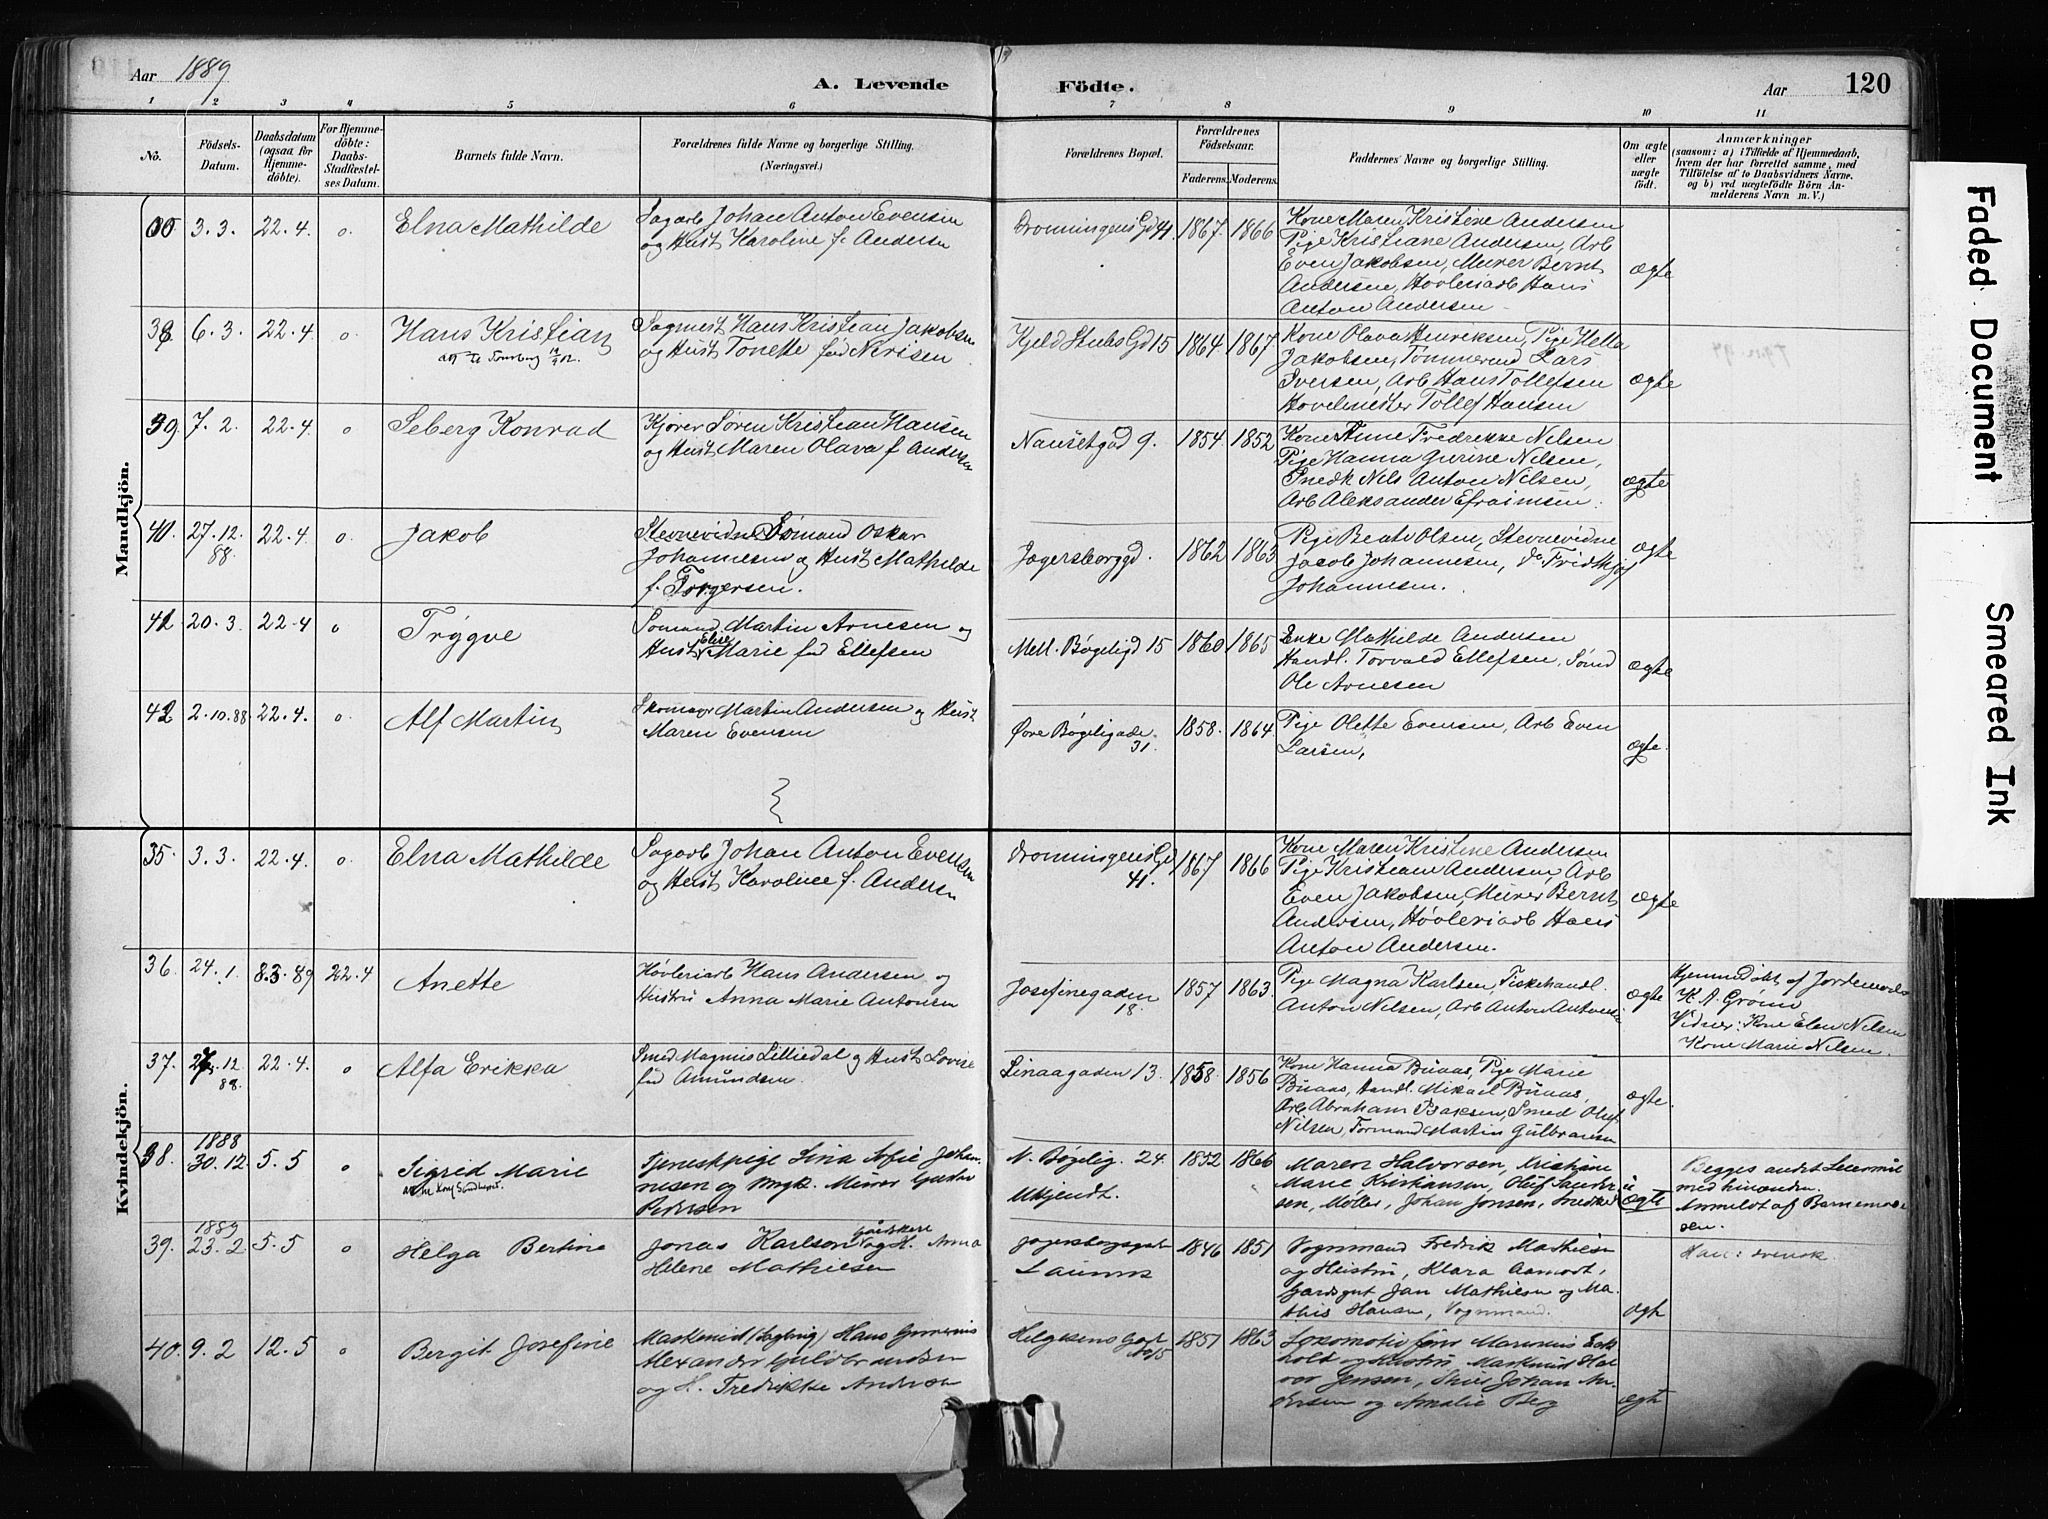 Aar 1889
A. Levende
Födte.
Aar
120
1 2 3 4 5 6 7 8 9 10 11
No.
Födsels-Datum.
Daabsdatum (ogsaa for Hjemme-döbte).
For Hjemme-döbte: Daabs-Stadfæstel-ses Datum.
Barnets fulde Navn.
Forældrenes fulde Navne og borgerlige Stilling. (Næringsvei.)
Forældrenes Bopæl.
Forældrenes Födselsaar.
Faderens. Moderens.
Faddernes Navne og borgerlige Stilling.
Om ægte eller uægte födt.
Anmærkninger
(saasom: a) i Tilfælde af Hjemmedaab,
hvem der har forrettet samme, med
Tilföielse af to Daabsvidners Navne.
og b) ved uægtefödte Börn An-
melderens Navn m. V.)
Mandkjön.
3.3. 22.4. o. Elna Mathilde
Sagarb Johan Anton Evensen
og Hust Karoline f. Andersen
Dronningens Gd 41. 1867. 1866
Kone Maren Kristine Andersen
Pige Kristiane Andersen, Arb
Even Jakobsen, Murer Bernt
Andersen, Høvleriarb Hans
Anton Andersen.
ægte
38 6.3. 22.4 o Hans Kristian
Sagmest Hans Kristian Jakobsen
og Hust Tonette fød Nerisen
Kjeld Stubs Gd 15 1864 1867
Kone Olava Henriksen, Pige Hella
Jakobsen, Tømmermd Lars
Iversen, Arb Hans Tollefsen
Hovelmester Tollef Hansen
ægte
39. 7.2. 22.4. o Seberg Konrad
Kjører Søren Kristian Hansen
og Hust Maren Olava f Andersen
Nansetgad 9. 1854 1852
Kone Anne Fredrekke Nelsen
Pige Hanna Gurine Nilsen,
Snedk Nils Anton Nilsen,
Arb Aleksander Efraimsen.
ægte
40. 27.12.88. 22.4 o. Jakob
Stevnevidne Sømand Oskar
Johannesen og Hust Mathilde
f. Torgersen.
Jegersborggd. 1862 1863
Pige Beate Olsen, Stevnevidne
Jacob Johannesen, Do Fridthjof
Johannesen.
ægte
41 20.3. 22.4 o Trygve
Sømand Martin Arnesen og
Hust Elise Marie fød Ellefsen
Mell. Bøgeligd 15 1860 1865
Enke Mathilde Andersen
Handl. Torvald Ellefsen, Sømd
Ole Arnesen
ægte
42 2.10.88 22.4. o Alf Martin
Skomager Martin Andersen og Hust
Maren Evensen
Øvre Bøgeligade 31. 1858. 1864
Pige Olette Evensen, Arb Even
Larsen,
ægte.
Kvindekjön.
35. 3.3. 22.4. o Elna Mathilde
Sagarb Johan Anton Evensen
og Hust Karoline f. Andersen
Dronningens Gd 41. 1867 1866
Kone Maren Kristine Andersen
Pige Kristiane Andersen, Arb
Even Jakobsen, Murer Bernt
Andersen, Høvleriarb Hans
Anton Andersen.
ægte
36. 24.1. 8.3.89 22.4 Anette
Høvleriarb Hans Andersen og
Hustru Anna Marie Antonsen
Josefinegaden 18. 1857 1863.
Pige Magna Karlsen, Fiskehandl.
Anton Nilsen, Arb Anton Antonsen
ægte
Hjemmedøbt af Jordemoder
K. A. Grönn
Vidner: Kone Elen Nilsen
Kone Marie Nelsen.
37. 27.12.88. 22.4. o Alfa Erikka
Smed Magnus Lilliedal og Hust Lovise
fød Amundsen.
Linaagaden 13. 1858. 1856
Kone Hanna Buaas, Pige Marie
Buaas, Handl. Mikael Buaas,
Arb Abraham Isaksen, Smed Oluf
Nilsen, Formand Martin Gulbransen
ægte.
38. 1888 30.12. 5.5 o Sigrid Marie
Tjenestpige Lina Sofie Johan-
nesen og Ungk. Murer Gustav
Pedersen
N. Bøgelig. 24. 1852 1866
Ukjendt.
Maren Halvorsen, Kristiane
Marie Kristiansen, Oluf Sander-
sen, Møller, Johan Jonsen, Snedker
uægte
Begges andet Leiermaal
med hinanden.
Anmeldt af Barnemode-
ren.
39. 1889 23.2 5.5 o Helga Bertine
Jonas Karlson og H. Anna
Helene Mathiesen
Jegersborgsgate
Laurvig 1846 1851
Vognmand Fredrik Mathiesen
og Hustru, Klara Aamodt,
Gardsgut Jan Mathiesen og Ma-
this Hansen, Vognmand.
ægte
Han: svensk.
40. 9.2 12.5 o Bergit Josefine
Maskinist Hans
Alexander Guldbrandsen
og H. Fredrikke Andersen
Helgesens Gade 1851 1863
Lokomotivfører
og Hustru, Maskinist Hal-
vor Jensen, Johan An-
dersen og Amalie Berg
ægte
Faded Document
Smeared Ink